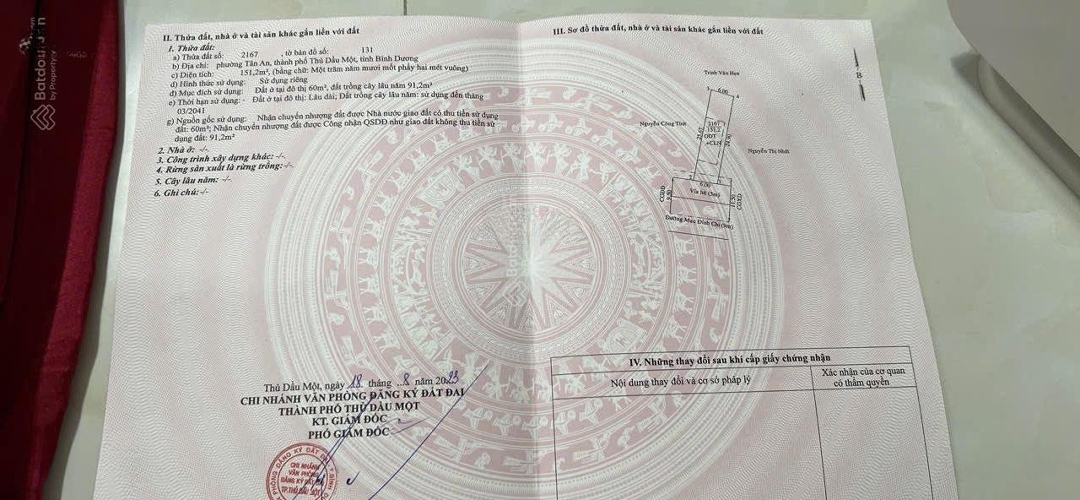 Batdongsan
by PropertyGuru
II. Thửa đất, nhà ở và tài sản khác gắn liền với đất
1. Thửa đất:
a) Thửa đất số: 2167 , tờ bản đồ số: 131
b) Địa chỉ: phường Tân An, thành phố Thủ Dầu Một, tỉnh Bình Dương
c) Diện tích: 151,2m², (bằng chữ: Một trăm năm mươi mốt phẩy hai mét vuông)
d) Hình thức sử dụng: Sử dụng riêng
đ) Mục đích sử dụng: Đất ở tại đô thị 60m², đất trồng cây lâu năm 91,2m²
e) Thời hạn sử dụng: - Đất ở tại đô thị: Lâu dài; Đất trồng cây lâu năm: sử dụng đến tháng
03/2041
g) Nguồn gốc sử dụng: Nhận chuyển nhượng đất được Nhà nước giao đất có thu tiền sử dụng
đất: 60m²; Nhận chuyển nhượng đất được Công nhận QSDĐ như giao đất không thu tiền sử
dụng đất: 91,2m²
2. Nhà ở: -/-
3. Công trình xây dựng khác: -/-
4. Rừng sản xuất là rừng trồng: -/-
5. Cây lâu năm: -/-
6. Ghi chú: -/-
Thủ Dầu Một, ngày 18 tháng 8 năm 2023
CHI NHÁNH VĂN PHÒNG ĐĂNG KÝ ĐẤT ĐAI
THÀNH PHỐ THỦ DẦU MỘT
KT. GIÁM ĐỐC
PHÓ GIÁM ĐỐC
CHI NHÁNH
VĂN PHÒNG
ĐĂNG KÝ ĐẤT ĐAI
TP.THỦ DẦU MỘT
III. Sơ đồ thửa đất, nhà ở và tài sản khác gắn liền với đất
B
5 6,00 4
Nguyễn Công Tính
2167
151,2
ODT
+CLN
Nguyễn Thị Nhớt
6,00
CGĐĐ
9,50
11,50
Đường Mạc Đĩnh Chi
IV. Những thay đổi sau khi cấp giấy chứng nhận
Nội dung thay đổi và cơ sở pháp lý
Xác nhận của cơ quan
có thẩm quyền